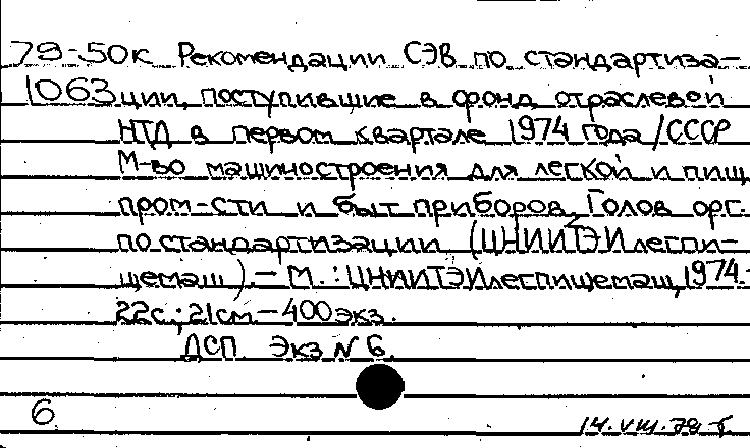 79-50к Рекомендации СЭВ по стандартиза-
1063 ции, поступившие в фонд отраслевой
НТД в первом квартале 1974 года / СССР
М-во машиностроения для легкой и пищ.
пром-сти и быт приборов, Голов орг.
по стандартизации (ЦНИИТЭИлегпи-
щемаш). – М.: ЦНИИТЭИлегпищемаш, 1974.-
22с.; 21см – 400 экз.
ДСП Экз N 6.
6
14.VIII.79